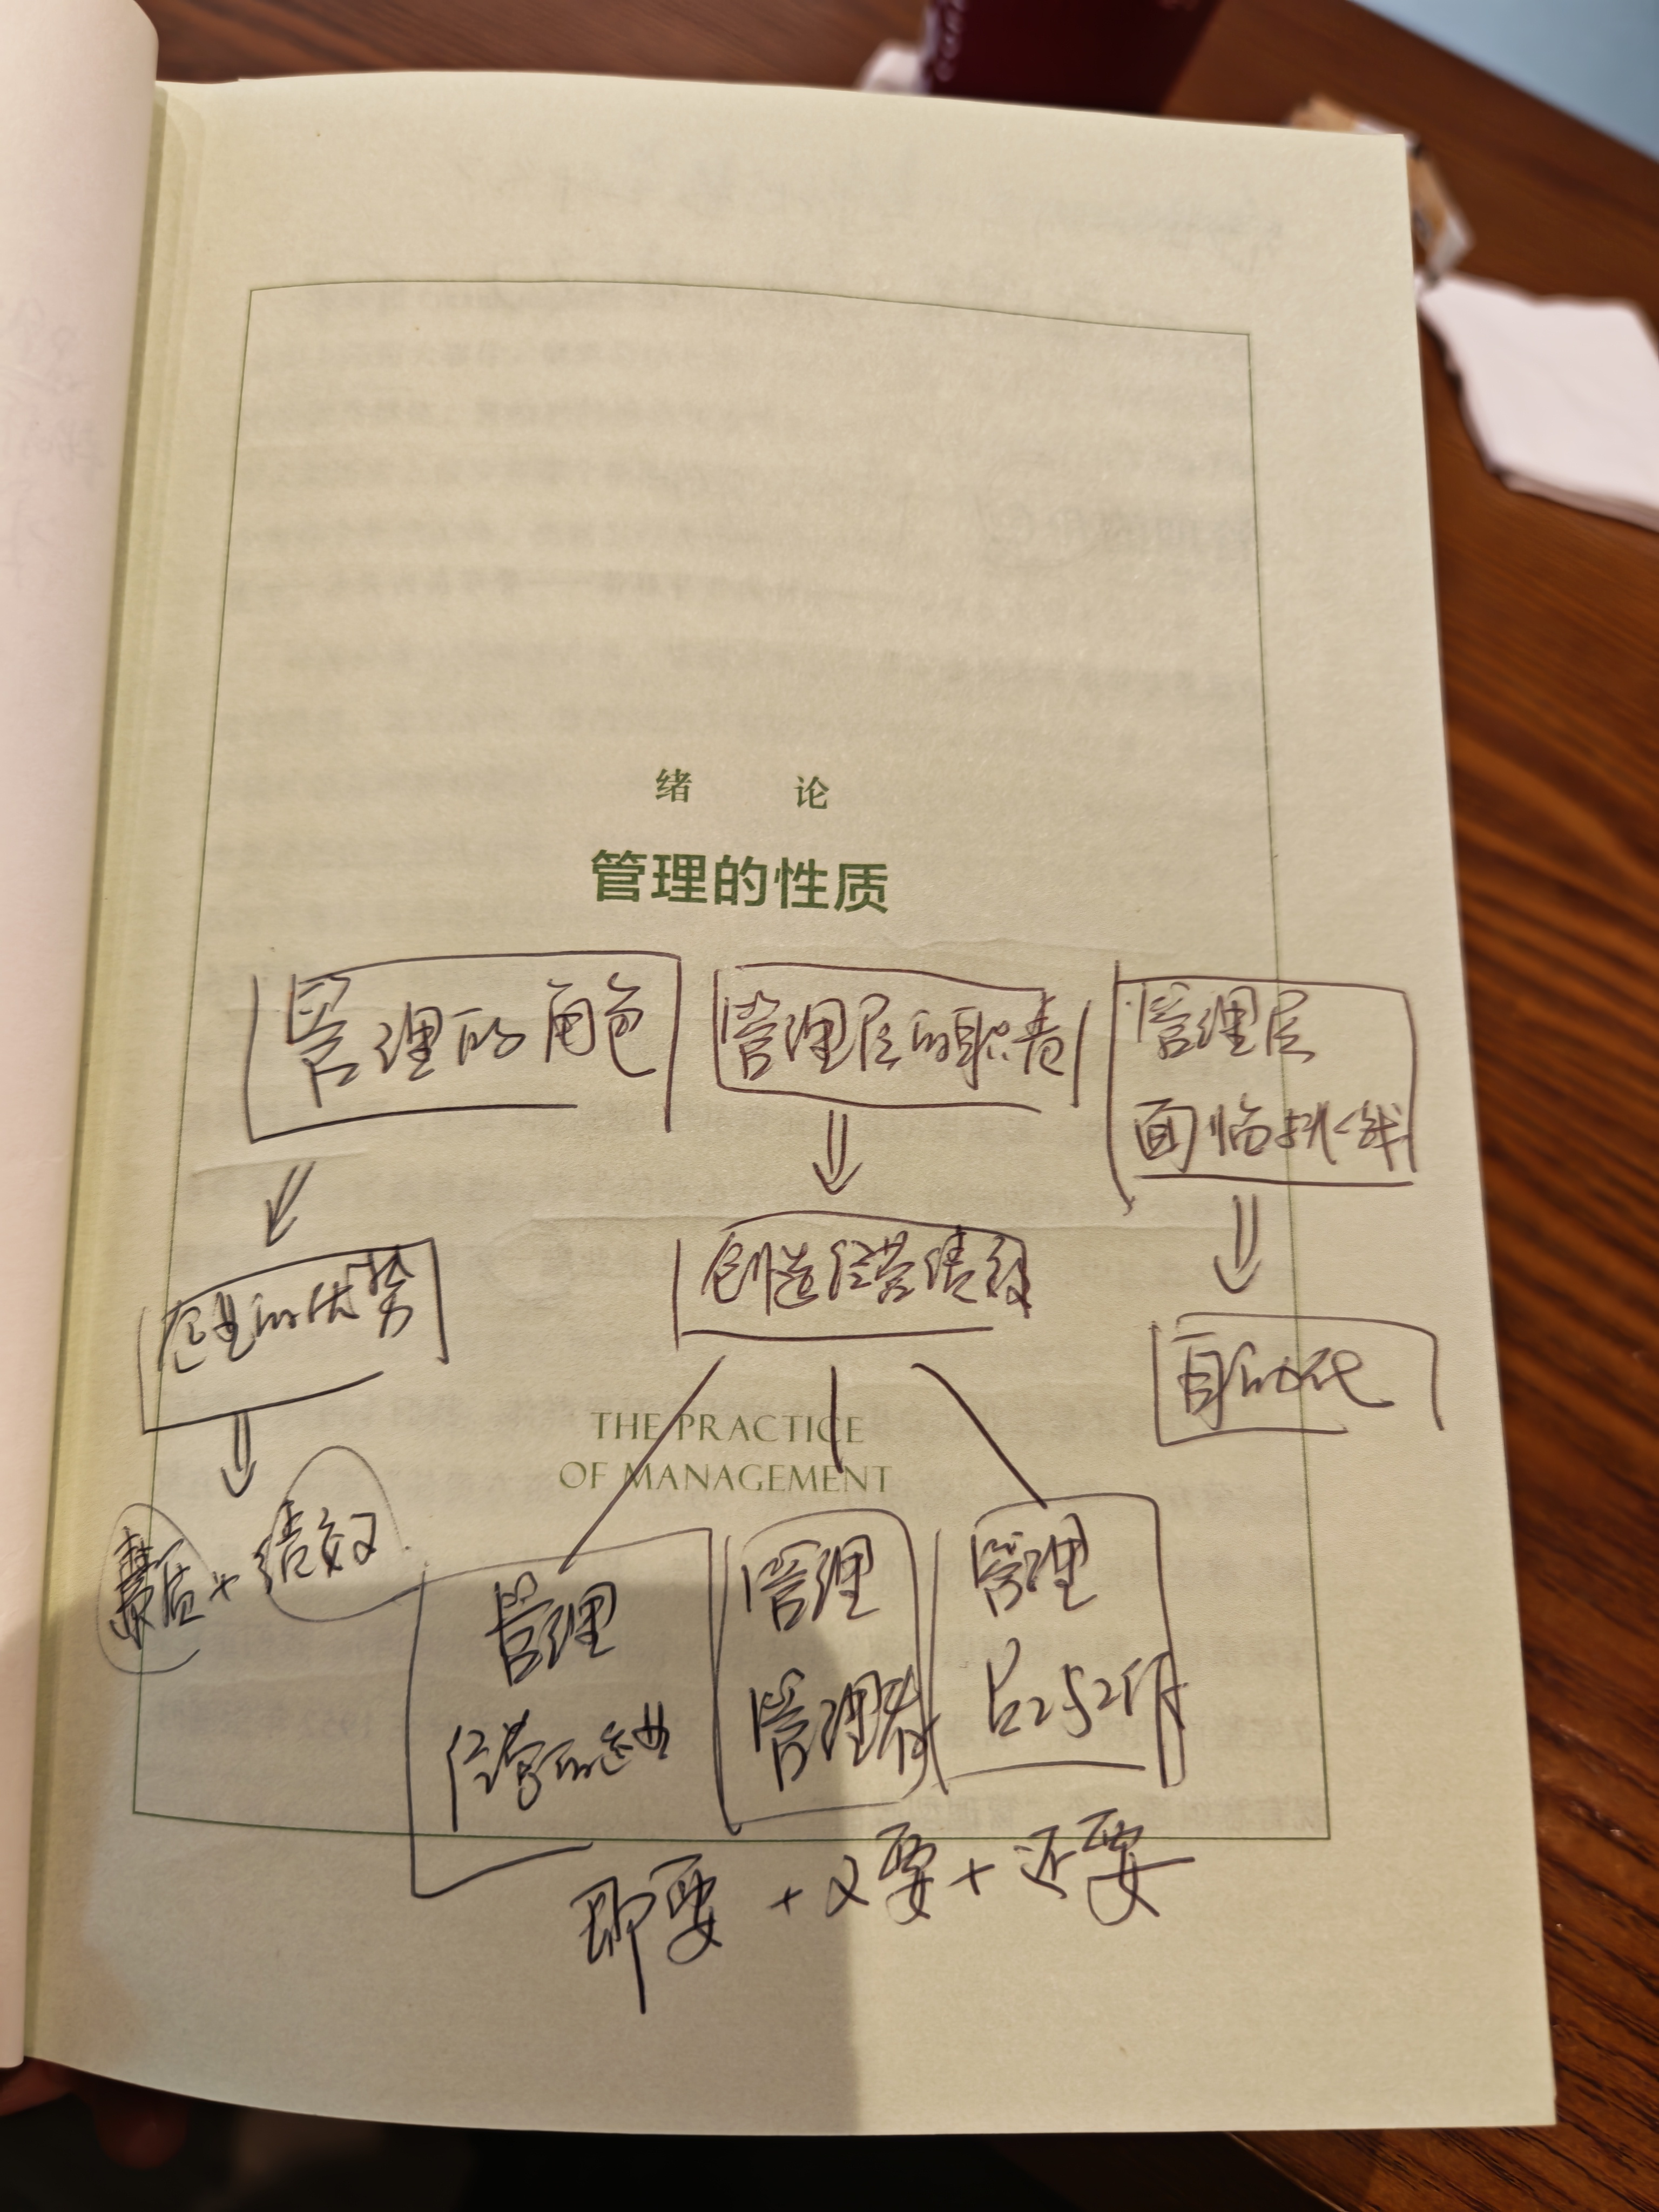 绪 论
管理的性质
管理的角色
管理层的职责
管理层
面临挑战
企业的优势
创造经营绩效
自动化
THE PRACTICE
OF MANAGEMENT
素质+绩效
管理
管理
管理
管理者
员工与工作
即要+又要+还要